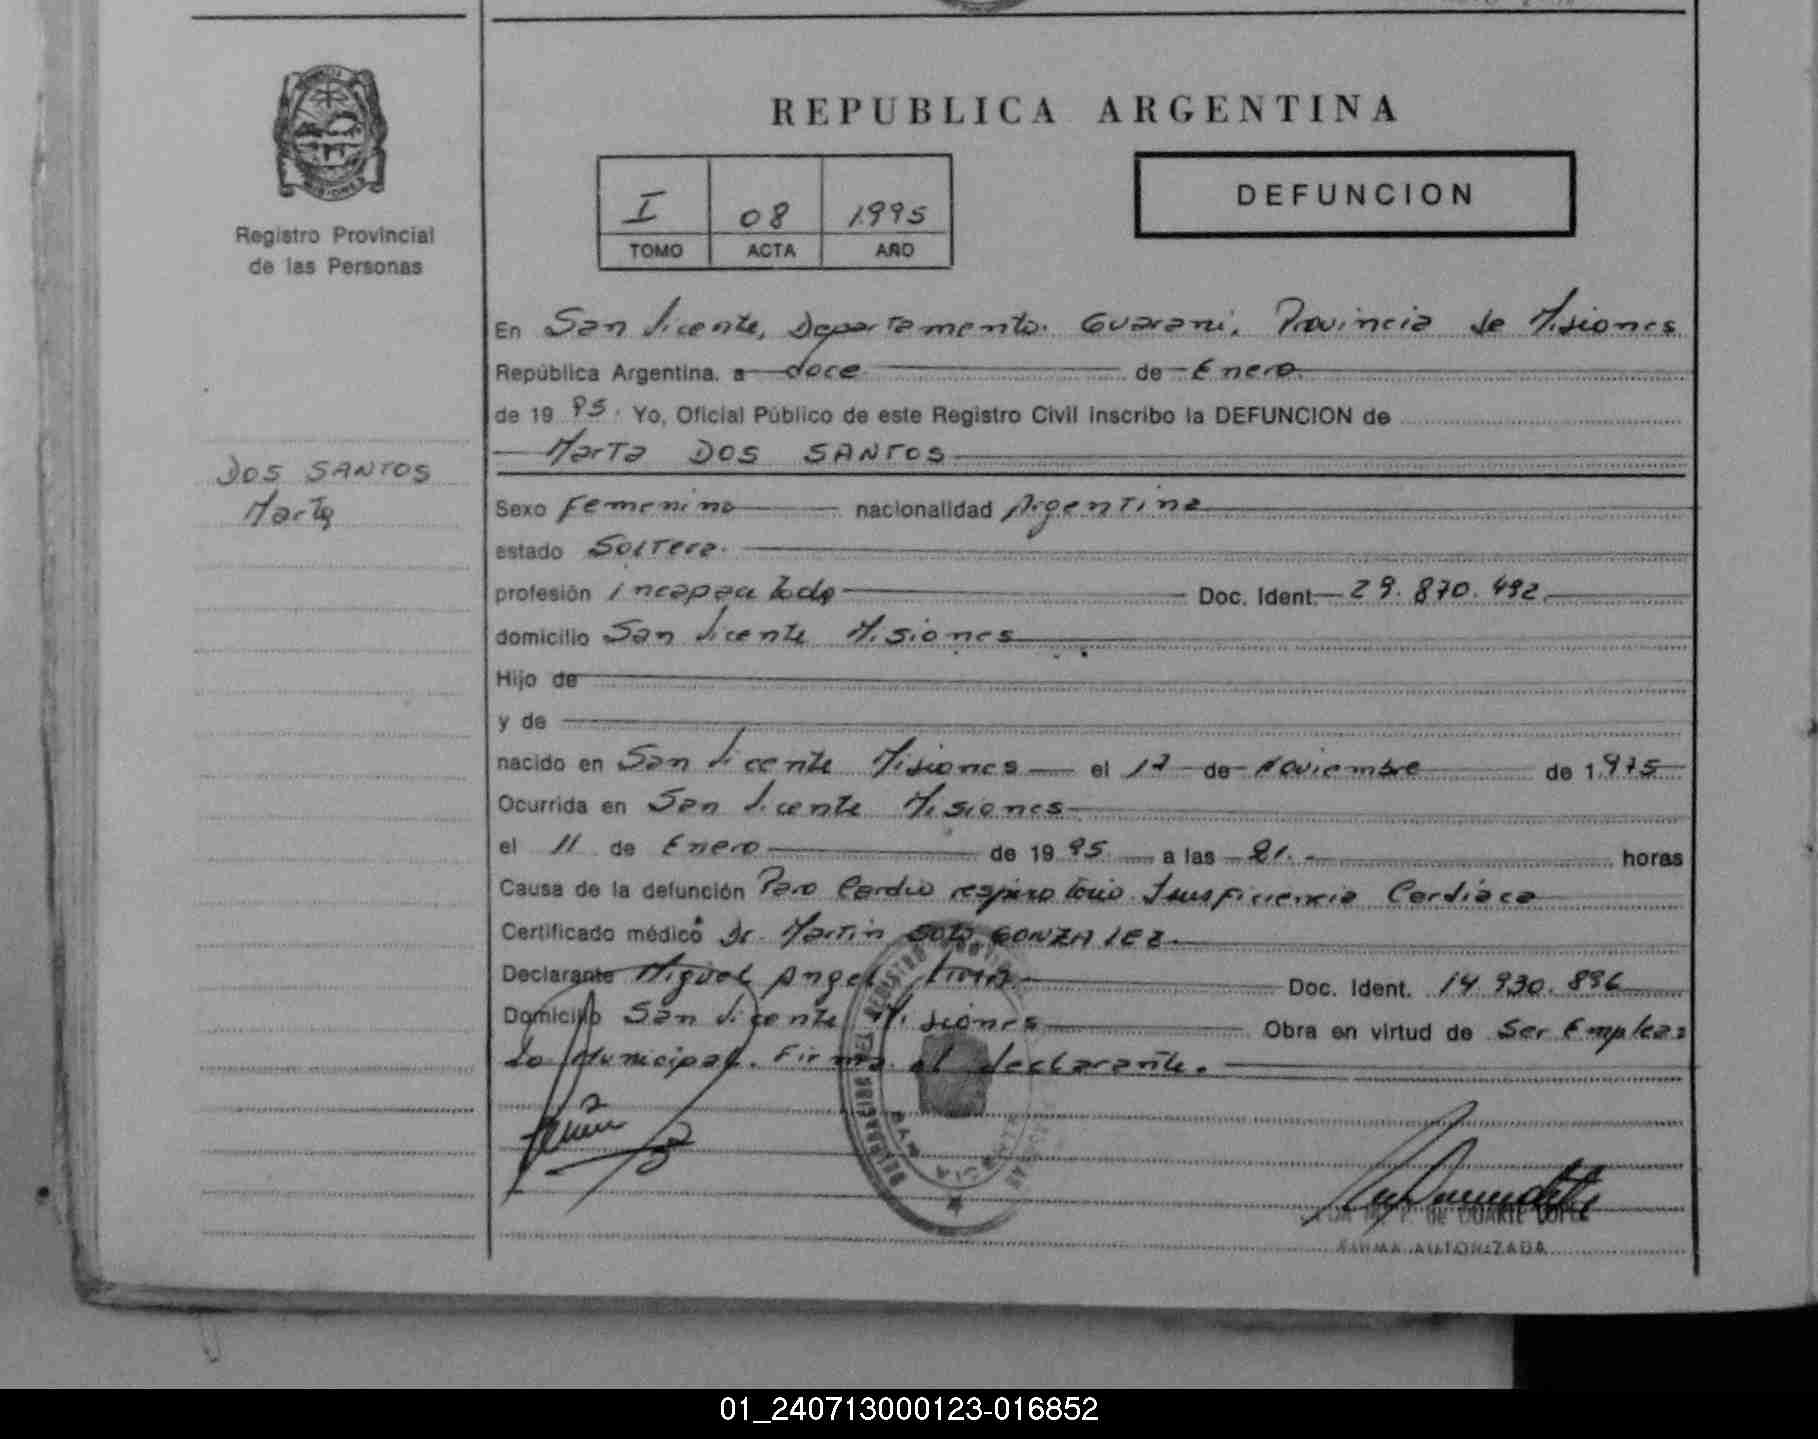 REPUBLICA ARGENTINA
DEFUNCION
I 08 1995
TOMO ACTA AÑO
Registro Provincial
de las Personas
DOS SANTOS
Marta
En San Vicente, Departamento Guarani, Provincia de Misiones
República Argentina, a doce de Enero
de 1995. Yo, Oficial Público de este Registro Civil inscribo la DEFUNCION de
Marta DOS SANTOS
Sexo Femenino nacionalidad Argentina
estado Soltera.
profesión incapacitada Doc. Ident. 29.870.492
domicilio San Vicente Misiones
Hijo de
y de
nacido en San Vicente Misiones el 17 de Noviembre de 1.975
Ocurrida en San Vicente Misiones
el 11 de Enero de 1995 a las 21. horas
Causa de la defunción Paro Cardio respiratorio Insuficiencia Cardiaca
Certificado médico Dr. Martin SOTO GONZALEZ.
Declarante Miguel Angel Doc. Ident. 14.930.896
Domicilio San Vicente Misiones Obra en virtud de Ser Emplea
do Municipal. Firma el declarante.
DE DUARTE LOPEZ
FIRMA AUTORIZADA
01_240713000123-016852